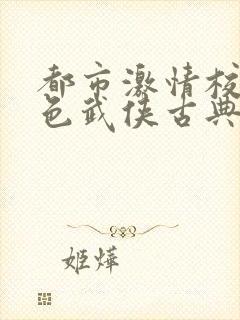 都市激情校
色武侠古典
姬烨